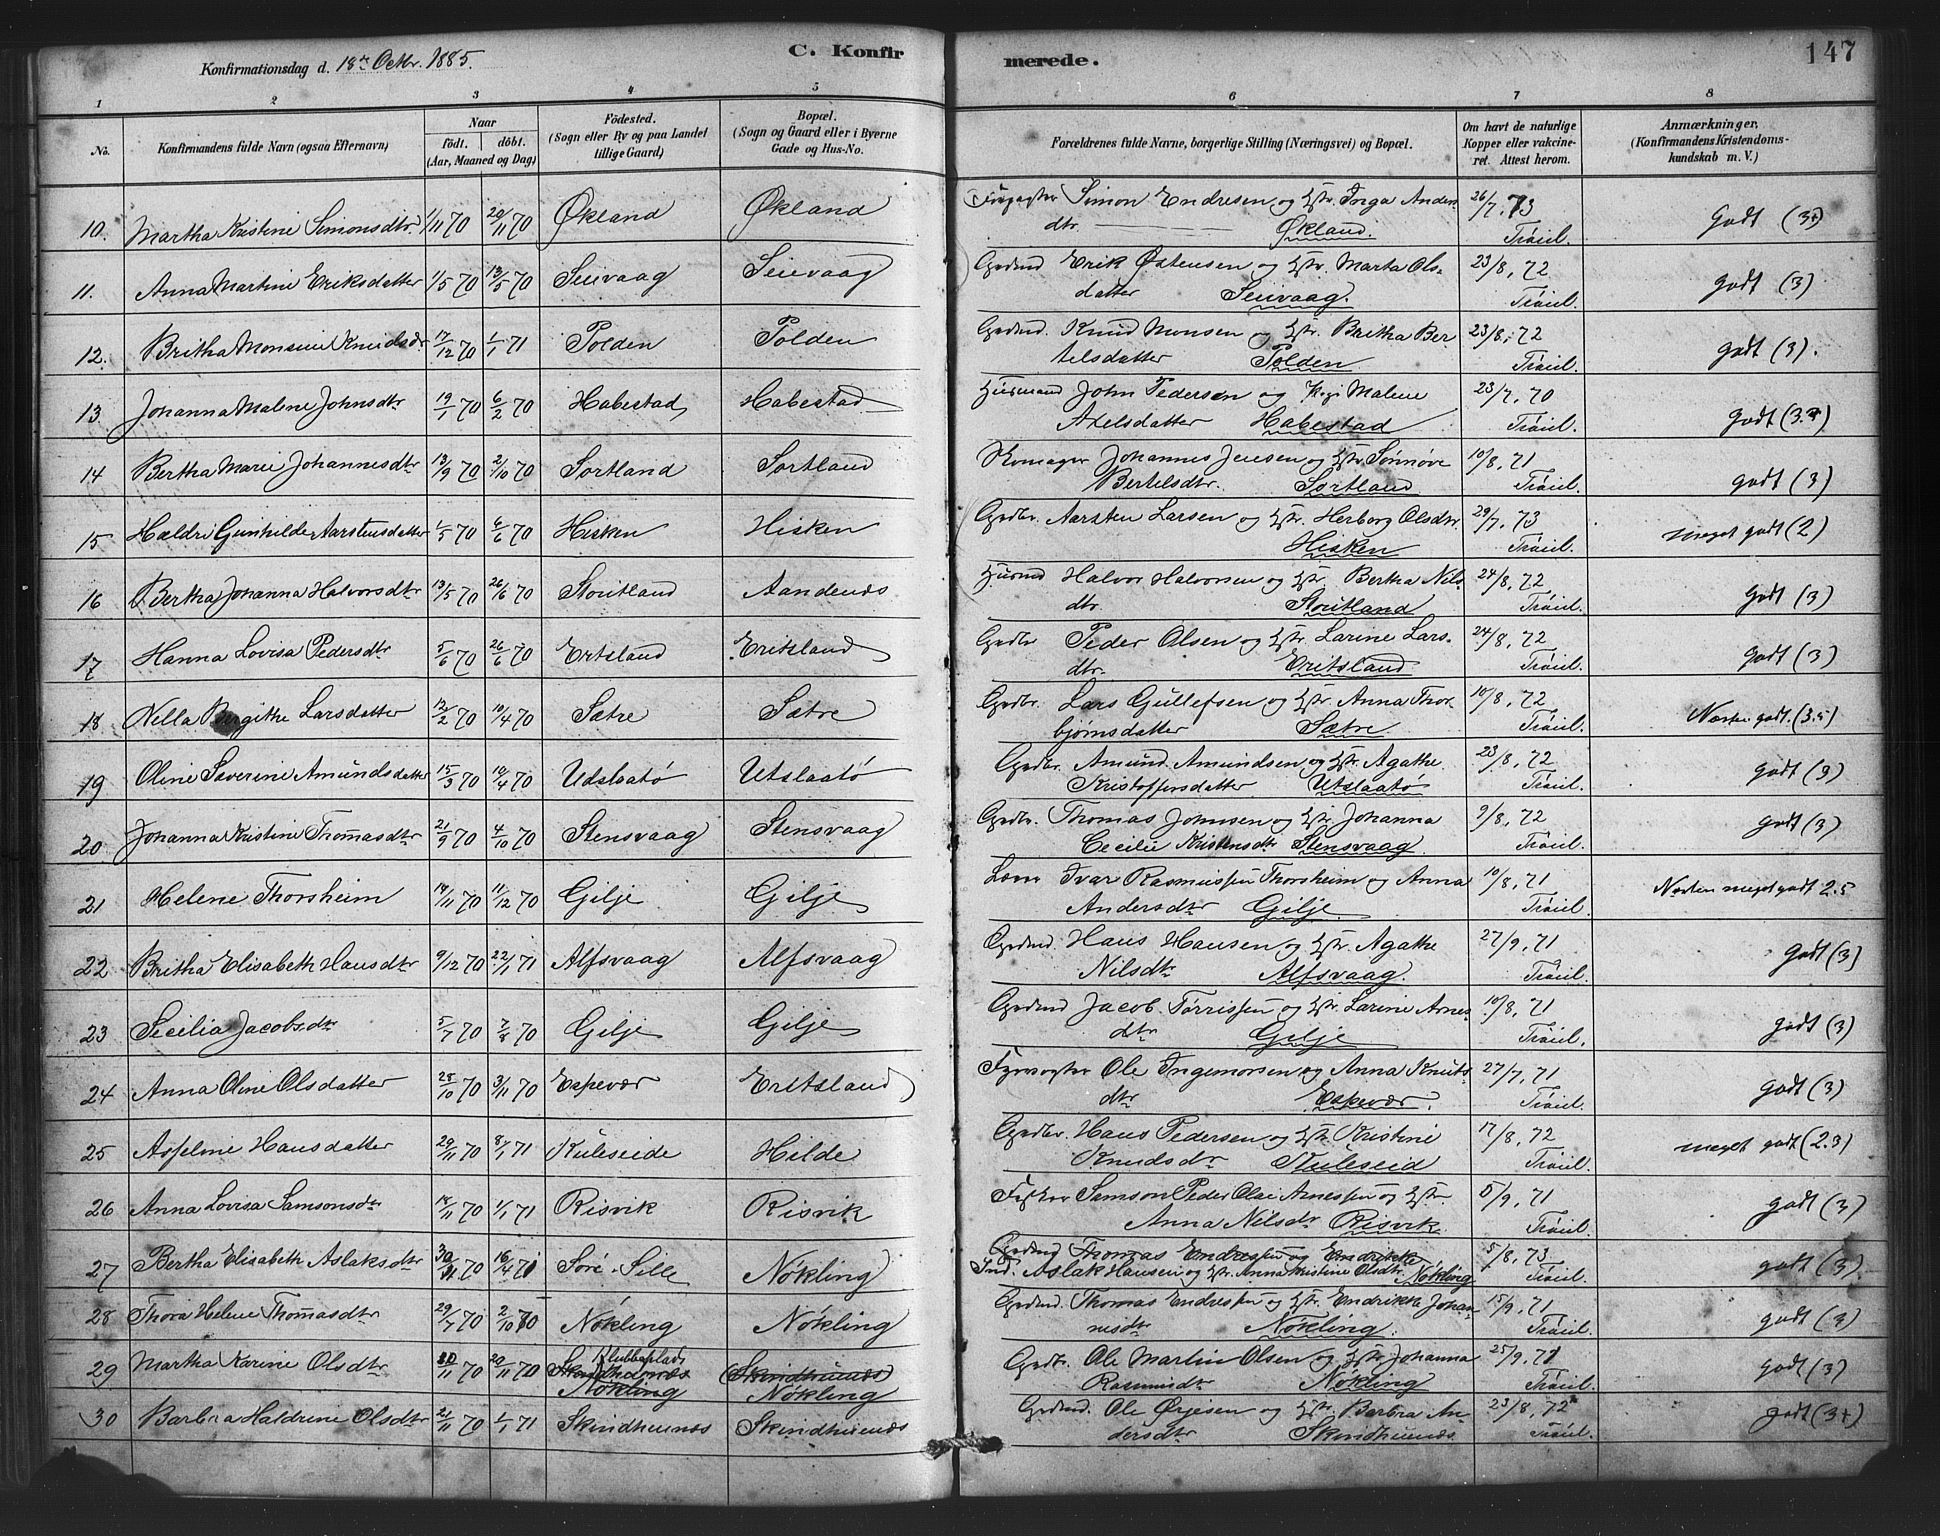 Konfirmationsdag d. 18de Octbr. 1885.
C. Konfirmerede.
147
1 2 3 4 5 6 7 8
No.
Konfirmandens fulde Navn (ogsaa Efternavn)
Naar
födt. döbt.
(Aar, Maaned og Dag)
Födested.
(Sogn eller By og paa Landet tillige Gaard)
Bopæl.
(Sogn og Gaard eller i Byerne Gade og Hus-No.
Forældrenes fulde Navne, borgerlige Stilling (Næringsvei) og Bopæl.
Om havt de naturlige Kopper eller vakcineret. Attest herom.
Anmærkninger, (Konfirmandens Kristendomskundskab m. V.)
10. Martha Kristine Simonsdtr 1/11 70 20/11 70 Økland Økland Simon Endresen og Hstr. Torga Anders 26/7, 73 Godt (3+)
dtr. Økland. Tröiel.
11. Anna Martine Eriksdatter 1/5 70 13/5 70 Seivaag Seievaag Grdmd Erik Østensen og Hstr. Marta Ols- 23/8, 72 godt (3)
datter Seivaag. Tröiel.
12. Britha Monsine Knudsdr 17/12 70 1/1 71 Tolden Tolden Grdmd. Knud Monsen og Hstr. Britha Ber 23/8, 72 godt (3).
telsdatter Tolden Tröiel.
13. Johanna Malene Johnsdtr 19/1 70 6/2 70 Habestad Habestad Husmand John Pedersen og Malene 23/7, 70 Godt (3+)
Axelsdatter Habestad Tröiel.
14 Bertha Marie Johannesdtr 13/9 70 2/10 70 Sortland Sortland Skomager Johannes Jensen og Hstr Sönnöve 10/8, 71 godt (3)
Bertelsdtr. Sortland Tröiel.
15 Haldri Gunhilde Aarstensdatter 1/5 70 6/6 70 Hisken Hisken Grdbr. Aarsten Larsen og Hstr. Herborg Olsdtr. 29/7, 73 meget godt (2)
Hisken Tröiel.
16 Bertha Johanna Halvorsdtr 13/5 70 26/6 70 Stoutland Aandenes Husmd Halvor Halvorsen og Hstr. Bertha Nils 24/8, 72 Godt (3)
dtr. Stoutland Tröiel.
17 Hanna Lovisa Pedersdtr 5/6 70 26/6 70 Ertsland Eritsland Grdbr Peder Olsen og Hstr. Larine Lars- 24/8, 72 Godt (3)
dtr. Eritsland Tröiel.
18 Nella Bergithe Larsdatter 12/2 70 10/4 70 Sætre Sætre Grdbr. Lars Gullefsen og Hstr. Anna Thor 10/8, 72 Næsten godt. (3.5)
bjørnsdatter Sætre Tröiel.
19 Oline Severine Amundsdatter 15/3 70 10/4 70 Udslaatö Utslaatö Grdbr. Amund Amundsen og Hstr Agathe 23/8, 72 godt (3)
Kristoffersdatter Utslaatö Tröiel.
20 Johanna Kristine Thomasdtr 21/9 70 4/10 70 Stensvaag Stensvaag Grdbr. Thomas Johnsen og Hstr. Johanna 9/8, 72 godt (3)
Cecilie Kristensdtr Stensvaag. Tröiel.
21 Helene Thorsheim 14/11 70 11/12 70 Gilje Gilje Lærer Ivar Rasmussen Thorsheim og Anna 10/8, 71 Næsten meget godt 2.5
Andersdtr Gilje Tröiel.
22 Britha Elisabeth Hansdtr 9/12 70 22/1 71 Alfsvaag Alfsvaag Grdmd. Hans Hansen og Hstr. Agathe 27/9, 71 godt (3)
Nilsdtr Alfsvaag. Tröiel.
23 Secilia Jacobsdtr 5/7 70 7/8 70 Gilje Gilje Grdmd Jacob Törrissen og Hstr. Larine Arnes 10/8, 71 godt (3)
dtr Gilje Tröiel.
24 Anna Oline Olsdatter 28/10 70 3/11 70 Espevær Eritsland Fyrvogter Ole Ingemorsen og Anna Knuts 27/7, 71 godt (3)
dtr Espevær. Tröiel.
25 Asseline Hansdatter 29/11 70 8/1 71 Kuleseide Hilde Grdbr. Hans Pedersen og Hstr. Kristine 17/8, 72 meget godt (2.3)
Knudsdtr Kuleseid Tröiel.
26 Anna Lovisa Samsonsdtr 14/11 70 1/1 71 Risvik Risvik Fisker Samson Peder Olai Arnessen og Hstr 5/9, 71 godt (3)
Anna Nilsdtr Risvik Tröiel.
27 Bertha Elisabeth Aslaksdtr 30/11 70 16/4 71 Söre Sille Nökling Grdmd Thomas Endressen og Endrikke 5/8, 73 godt (3)
Ind. Aslak Hansen og Hstr. Anna Kristine Olsdtr. Nökling Tröiel.
28 Thora Helene Thomasdtr 29/7 70 2/10 70 Nökling Nökling Grdmd. Thomas Endressen og Hstr. Endrikke Johan 15/9, 71 godt (3)
nesdtr Nökling. Tröiel.
29 Martha Karine Olsdtr 20/11 70 Klubbeplads Skindhuenæs Nökling (Skindhuenæs) Nökling Grdbr. Ole Martin Olsen og Hstr Johanna 25/9, 71 godt (3)
Rasmusdtr Nökling Tröiel.
30 Barbra Haldrine Olsdtr 21/11 70 1/1 71 Skindhuenæs Skindhuenæs Grdmd. Ole Ørjesen og Hstr Berbra An 23/8, 72 godt (3+)
dersdtr Skindhuenæs Tröiel.